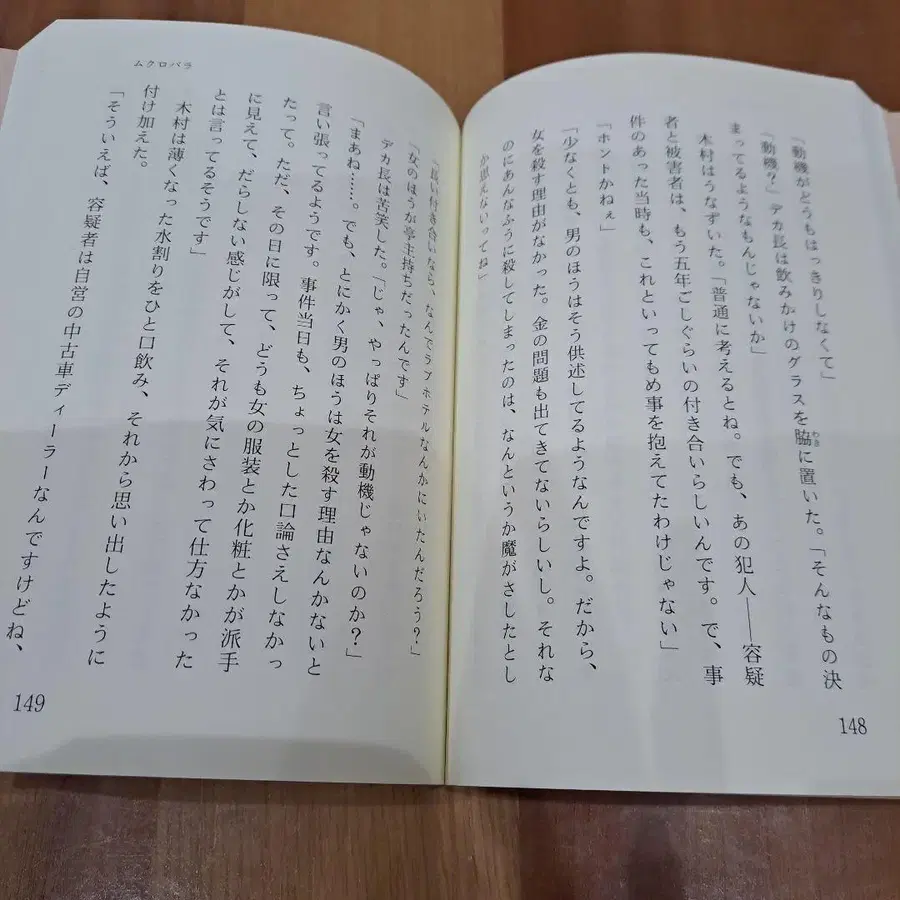 「動機がどうもはっきりしなくて」
「動機？」デカ長は飲みかけのグラスを脇に置いた。「そんなもの決
わき
まってるようなもんじゃないか」
木村はうなずいた。「普通に考えるとね。でも、あの犯人――容疑
者と被害者は、もう五年ごしぐらいの付き合いらしいんです。で、事
件のあった当時も、これといってもめ事を抱えてたわけじゃない」
「ホントかねぇ」
「少なくとも、男のほうはそう供述してるようなんですよ。だから、
女を殺す理由がなかった。金の問題も出てきてないらしいし。それな
のにあんなふうに殺してしまったのは、なんというか魔がさしたとし
か思えないってね」
148
ムクロバラ
「長い付き合いなら、なんでラブホテルなんかにいたんだろう？」
「女のほうが亭主持ちだったんです」
デカ長は苦笑した。「じゃ、やっぱりそれが動機じゃないのか？」
「まあね……。でも、とにかく男のほうは女を殺す理由なんかないと
言い張ってるようです。事件当日も、ちょっとした口論さえしなかっ
たって。ただ、その日に限って、どうも女の服装とか化粧とかが派手
に見えて、だらしない感じがして、それが気にさわって仕方なかった
とは言ってるそうです」
木村は薄くなった水割りをひと口飲み、それから思い出したように
付け加えた。
「そういえば、容疑者は自営の中古車ディーラーなんですけどね、
149